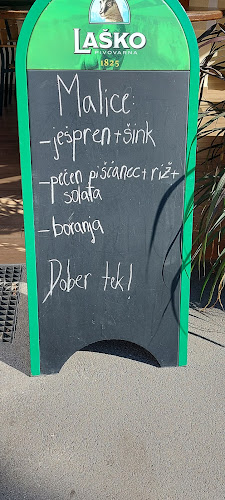 LAŠKO
PIVOVARNA
1825
Malice:
-ješpren+šink
-pečen piščanec+riž+
solata
-boranja
Dober tek!